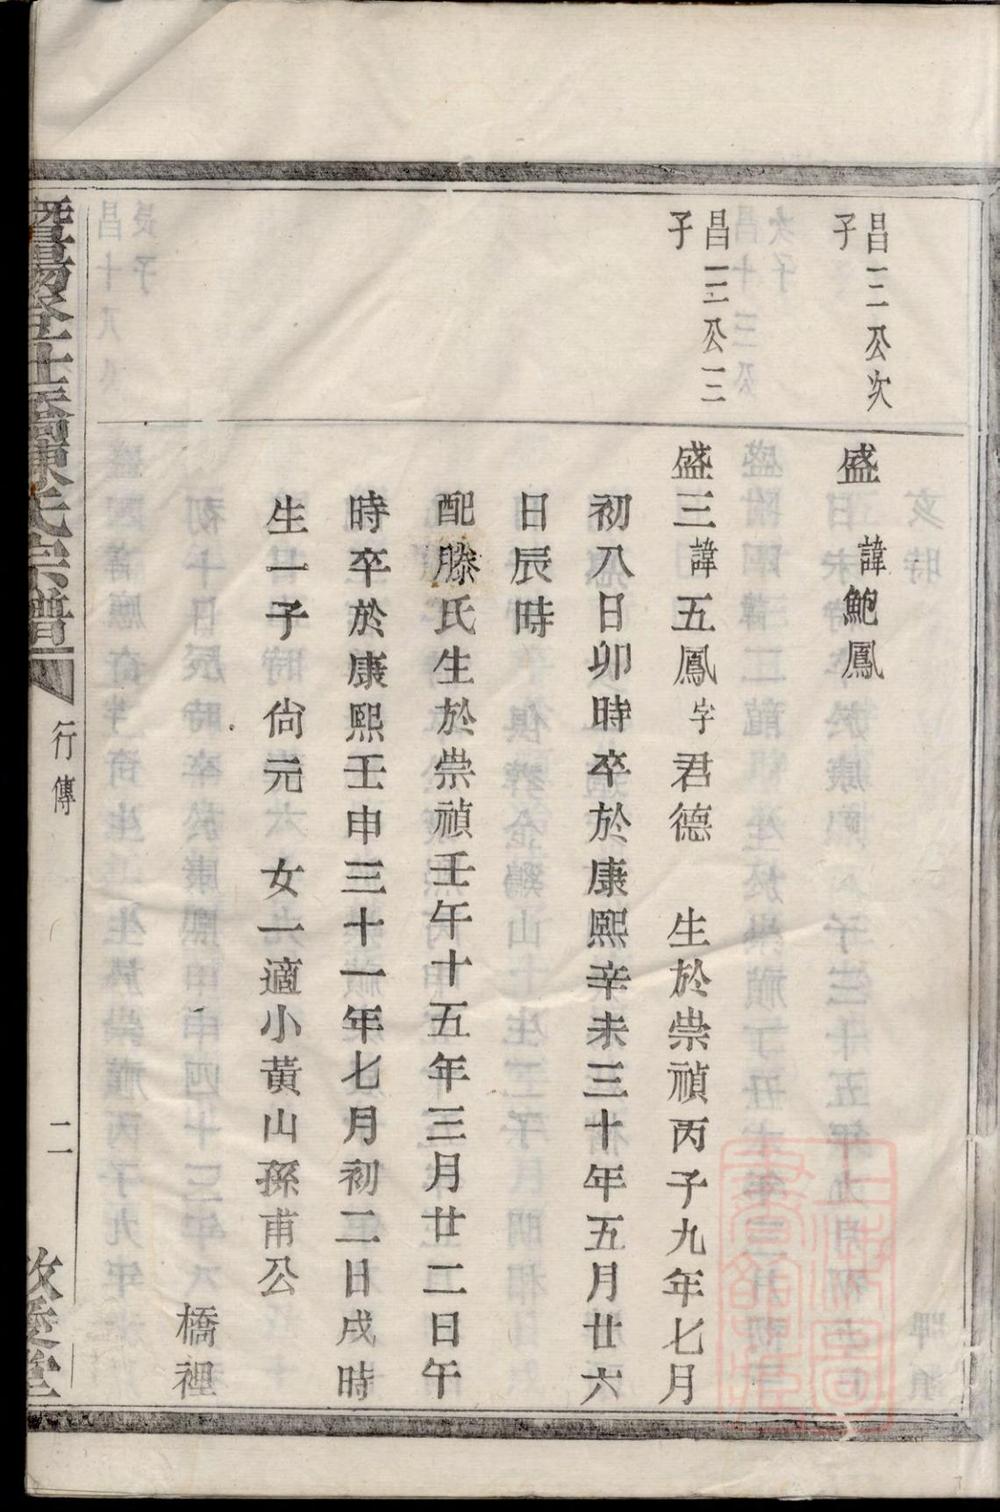 昌二公次
子
盛　諱鮑鳳
昌三公三
子
盛三諱五鳳字君德　生於崇禎丙子九年七月
初八日卯時卒於康熙辛未三十年五月廿六
日辰時
配滕氏生於崇禎壬午十五年三月廿二日午
時卒於康熙壬申三十一年七月初二日戌時
生一子尙元　女一適小黃山孫甫公
橋裡
氏宗譜
行傳
二